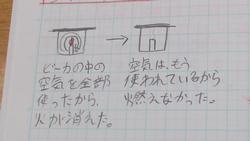 ビーカの中の
空気を全部
使ったから、
火が消えた。
空気は、もう
使われているから
燃えなかった。